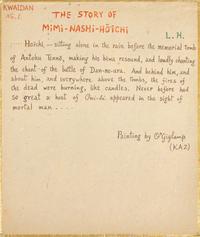 KWAIDAN
No. 1.
THE STORY OF
MIMI-NASHI-HŌÏCHI
L. H.
Hoïchi, — sitting alone in the rain before the memorial tomb
of Antoku Tennō, making his biwa resound, and loudly chanting
the chant of the battle of Dan-no-ura. And behind him, and
about him, and everywhere above the tombs, the fires of
the dead were burning, like candles. Never before had
so great a host of Oni-bi appeared in the sight of
mortal man . . . .
Painting by
(KAZ)